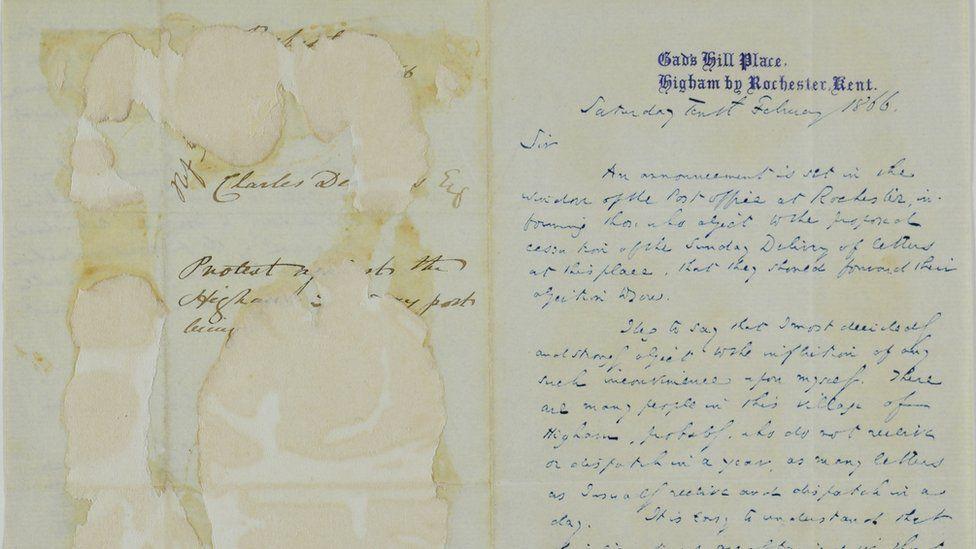 Charles D s Esq
Protest against the
Higham post
being
Gad's Hill Place,
Higham by Rochester, Kent.
Saturday Tenth February 1866.
Sir
An announcement is set in the
window of the Post office at Rochester, in-
forming those who object to the proposed
cessation of the Sunday Delivery of letters
at this place, that they should forward their
objection to you.
I beg to say that I most decidedly
and strongly object to the infliction of any
such inconvenience upon myself. There
are many people in this village of
Higham, probably, who do not receive
or dispatch in a year, as many letters
as I usually receive and dispatch in a
day. It is easy to understand that